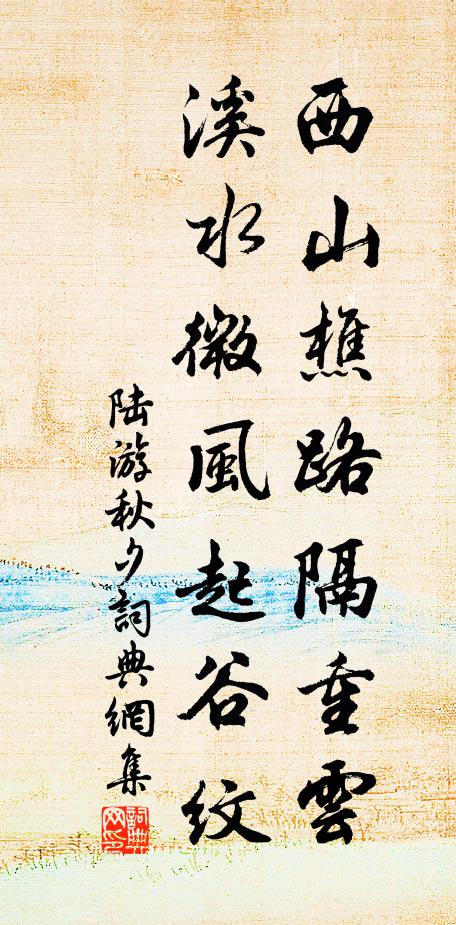 西山樵路隔重雲
溪水微風起谷紋
陆游秋夕詞典網集
詞典网印